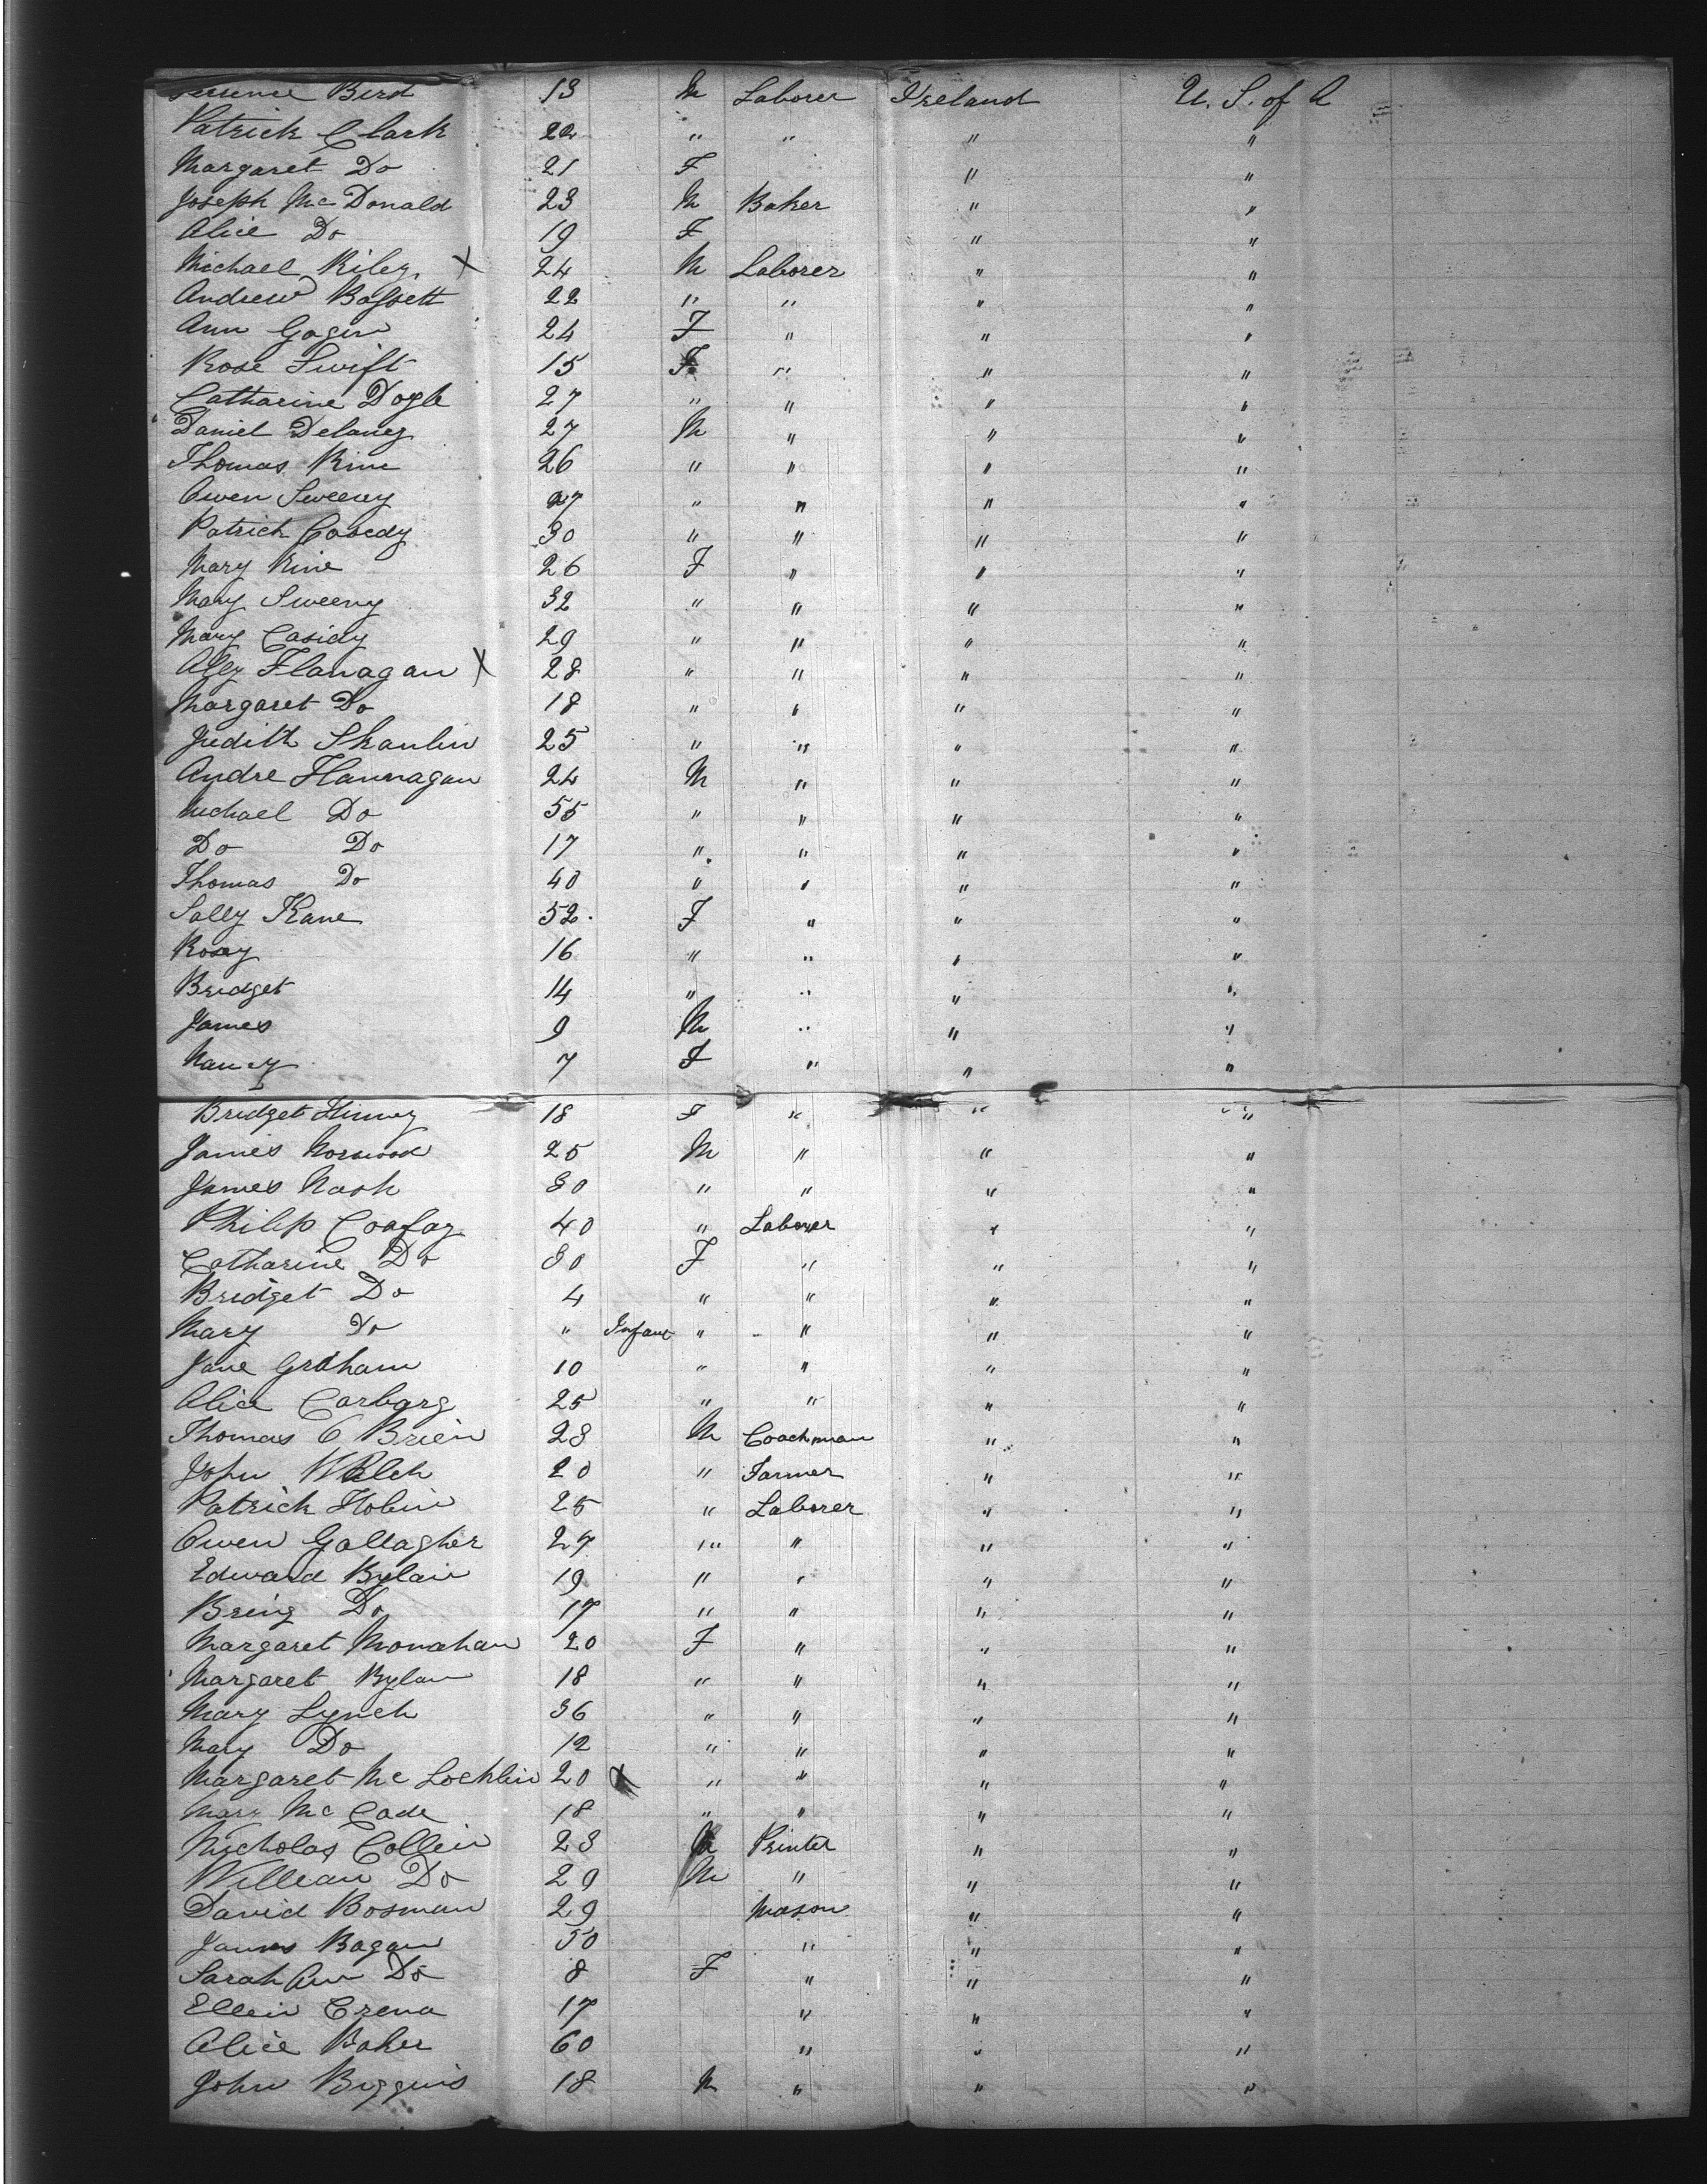 Bird 13 M Laborer Ireland U. S. of A
Patrick Clark 22 " " " "
Margaret Do 21 F " "
Joseph Mc Donald 23 M Baker " "
Alice Do 19 F " "
Michael Riley X 24 M Laborer " "
Andrew Bassett 22 " " " "
Ann Gogin 24 F " " "
Rose Swift 15 F " " "
Catharine Dogle 27 " " " "
Daniel Delaney 27 M " " "
Thomas Rine 26 " " " "
Owen Sweeny 27 " " " "
Patrick Casedy 30 " " " "
Mary Rine 26 F " " "
Mary Sweeny 32 " " " "
Mary Casidy 29 " " " "
Flanagan X 28 " " " "
Margaret Do 18 " " " "
Judith Skanlin 25 " " " "
Andre Flannagan 24 M " " "
Michael Do 55 " " " "
Do Do 17 " " " "
Thomas Do 40 " " " "
Sally Kane 52 F " " "
Rosey 16 " " " "
Bridget 14 " " " "
James 9 M " " "
Nancy 7 F " " "
Bridget 18 F " " "
James Norwood 25 M " " "
James Nash 30 " " " "
Philip 40 " Laborer " "
Catharine Do 30 F " " "
Bridget Do 4 " " " "
Mary Do " Infant " " " "
Jane Graham 10 " " " "
Alice 25 " " " "
Thomas O Brien 28 M Coachman " "
John Welch 20 " Farmer " "
Patrick Hobin 25 " Laborer " "
Owen Gallagher 27 " " " "
Edward Bylan 19 " " " "
Do 17 " " " "
Margaret Monahan 20 F " " "
Margaret Bylan 18 " " " "
Mary Lynch 36 " " " "
Mary Do 12 " " " "
Margaret Mc Lochlin 20 X " " " "
Mary Mc Cade 18 " " " "
Nicholas Collin 23 M Printer " "
William Do 29 M " " "
David Bosman 29 Mason " "
James Bagan 50 " " "
Sarah Ann Do 8 F " " "
Ellen Crena 17 " " "
Alice Baker 60 " " "
John Biggins 18 M " " "